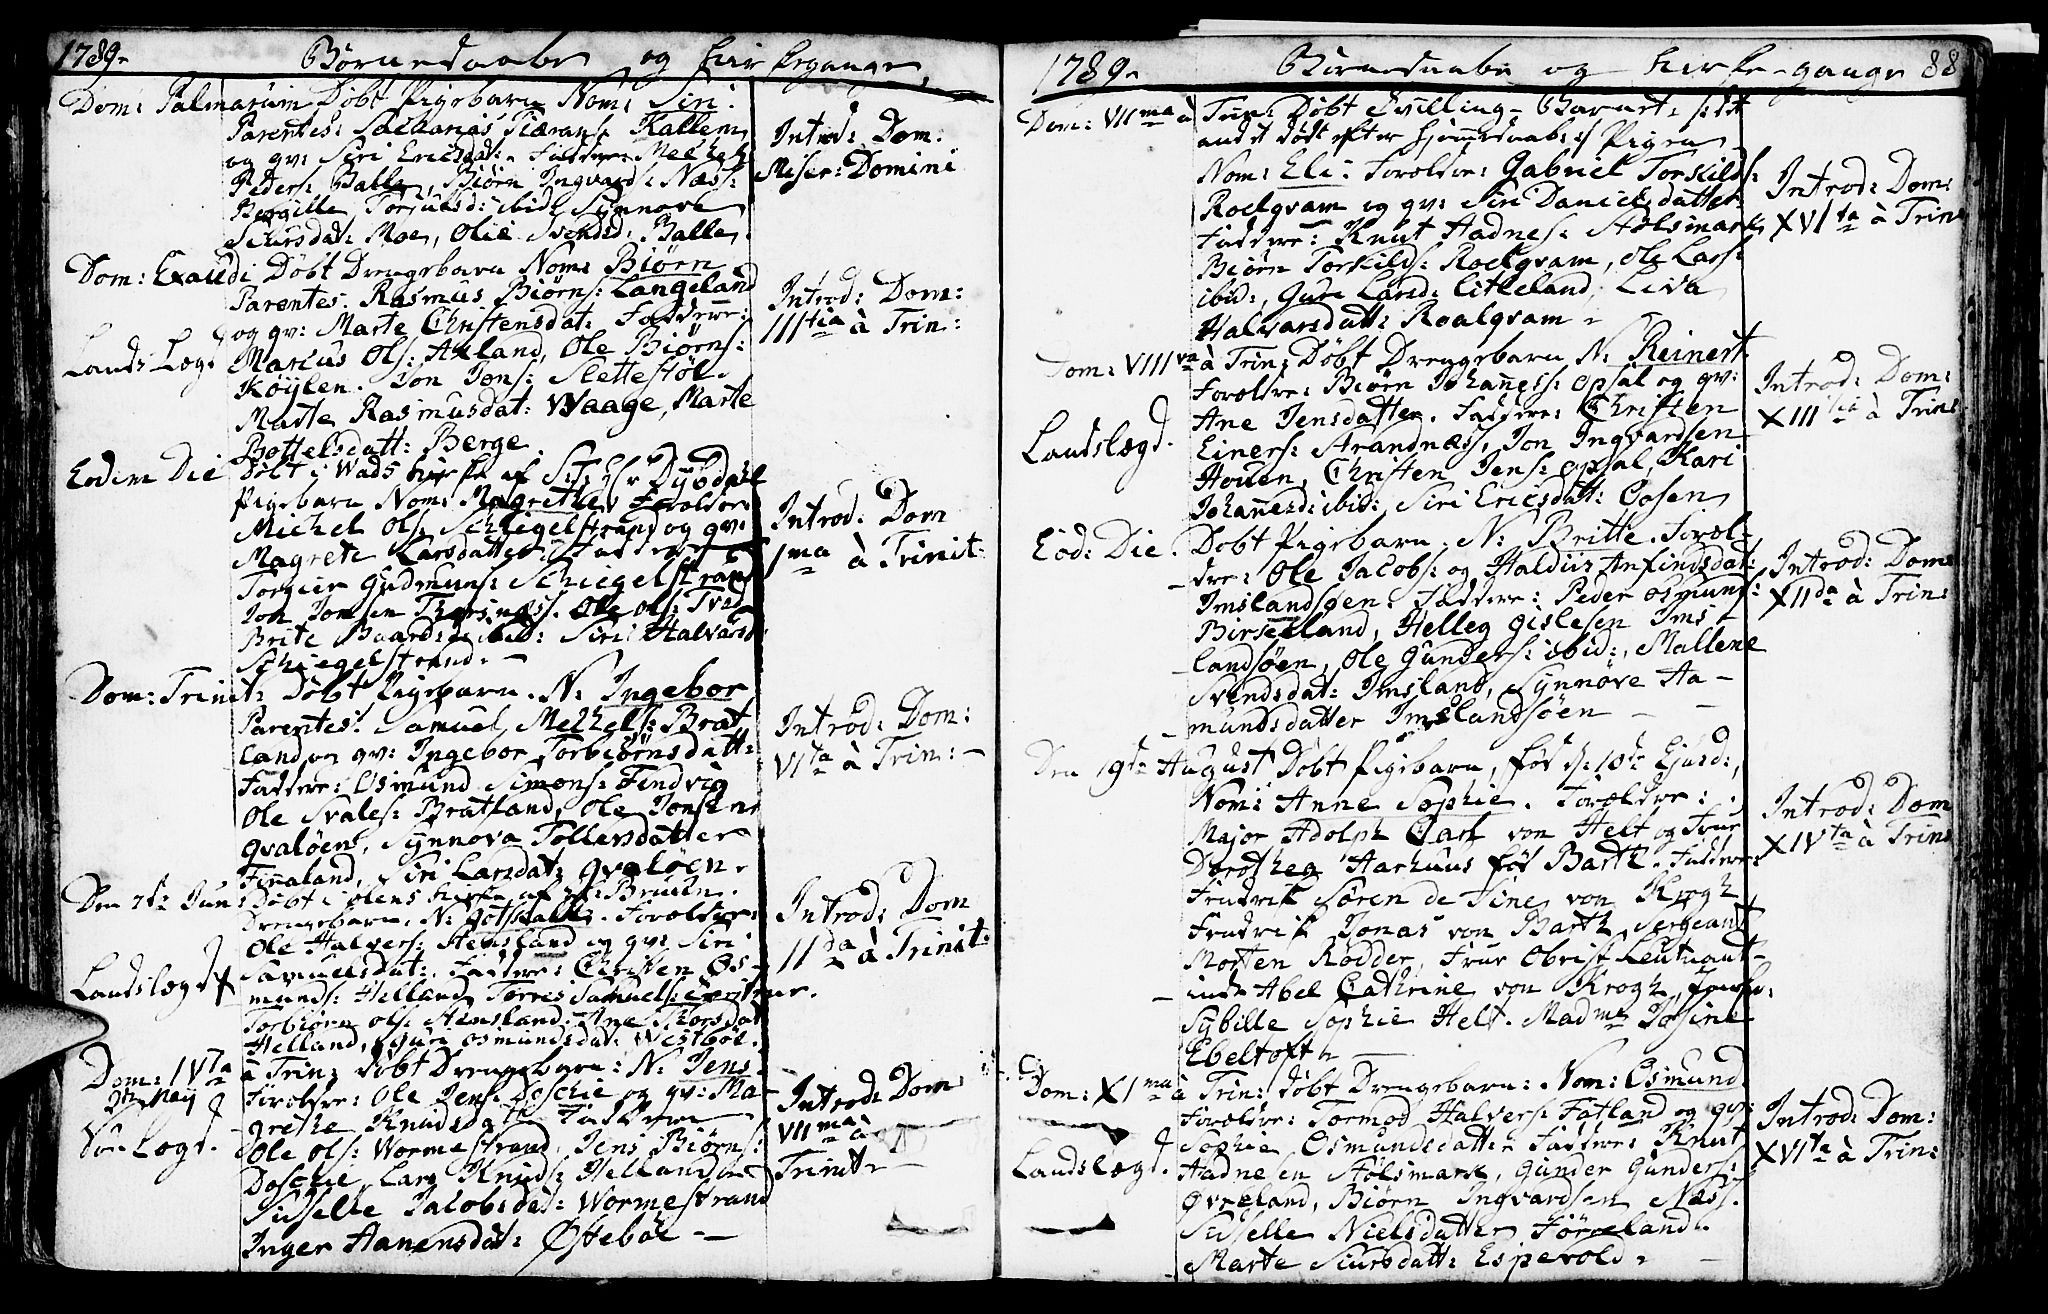 1789.
Børnedaaber og Kirkegange,
Dom: Palmarum Døbt Pigebarn Nom: Siri.
Parentes: Sacharias Kallem
og qv: Siri Ericsdat: Faddere: Mechel
Peders: Balle, Biørn Ingvards: Næss:
Torjulsd: ibid: Synnove
Siursdat: Moe, Olie Svendsd: Balle.
Introd: Dom:
Miser: Domini
Dom: Exaudi Døbt Drengebarn Nom: Biørn
Parentes. Rasmus Biørns: Langeland
og qv: Marte Christensdat: Faddere:
Landslægd
Marcus Ols: Axland, Ole Biørns:
Køijlen. Jon Jons: Slettestøl.
Marte Rasmusdat: Waage, Marte
Bottelsdatt: Berge.
Introd: Dom:
IIItia à Trin:
Eodem Die Døbt i Wads Kirke af Dybdahl
Pigebarn Nom: Magrethe, Foreldre
Michel Ols: Schiegelstrand og qv:
Magrete Larsdatter Faddere
Torgier Gudmuns: Schiegelstrand
Jon Jonsen Thorsnæs. Ole Ols:
Brite Baards: ibid: Siri Halvarsd:
Schiegelstrand.
Introd: Dom
Ima à Trinit:
Dom: Trinit: Døbt Pigebarn. N: Ingebor
Parentes: Samuel Mechels: Brat
land og qv: Ingebor Torbiørnsdatt:
Faddere: Osmund Simons: Tendvig
Ole Svales: Bratland, Ole Jonsen
Qvaløen, Synnova Tollevsdatter
Finaland, Siri Larsdat: Qvaløen.
Introd: Dom:
VIta à Trin:
Den 7de Jun: Døbt i Ølens Kirke af Hr: Bruun.
Drengebarn. N: Gotskalk. Foreldre:
Ole Halvers: Stensland og qv: Siri
Samuelsdat: Faddere: Christen Os-
Landslægd
munds: Helland, Torres Samuels:
Torbiørn Ols: Stensland. Ane Thorsdat
Helland, Guri Osmundsdat: Westbøe.
Introd: Dom
IIda à Trinit:
Dom: IVta à Trin: Døbt Drengebarn: N: Jens.
Foreldre: Ole Jens: Doschie og qv: Ma-
grethe Knudsdatt Faddere
Søe-Legd.
Ole Ols: Wormestrand, Jens Biørns:
Doschie, Lars Knuds: Helland
Sidselle Jacobsdat: Wormestrand
Inger Aanensdat: Østebøe
Introd: Dom:
VIIma à
Trinit:
1789.
Børnedaabe og Kirke-gange 88
Dom: VIIma à Trin: Døbt Tvilling-Barn
andet døbt efter hjemmedaab Pigen
Nom: Eli. Foreldre: Gabriel Torkilds:
Roelqvam og qv: Siri Danielsdatter
Faddere: Knut Hadnes: Stølsmark
Biørn Torkilds: Roelqvam, Ole Lars:
ibid:, Guri Larsd: Litleland, Liva
Halvarsdatt: Roalqvam.
Introd: Dom:
XVIta à Trin:
Dom: VIIIva à Trin: Døbt Drengebarn N: Reinert.
Foreldre: Biørn Johaness: Opsal og qv:
Ane Jensdatter. Faddere: Christen
Landslægd.
Einers: Strandnæs, Jon Ingvardsen
Houen, Christen Jens: Opsal, Kari
Johanesd: ibid: Siri Ericsdatt: Oosen
Introd: Dom:
XIIItia à Trin:
Eod: Die. Døbt Pigebarn. N: Britte. Forel-
dre: Ole Jacobs: og Haldur Anfindsdat:
Imslandsøen: Faddere: Peder Osmunds:
Birkeland, Helleg Gislesen Ims-
landsøen, Ole Gunders: ibid:, Mallene
Svendsdat: Imsland, Synnøve Aa-
mundsdatter Imslandsøen
Introd: Dom:
XIIda à Trin:
Den 19de August Døbt Pigebarn, fød d: 10de Ejusd:,
Nom: Anne Sophie. Forældre:
Major Adolph Carl von Helt og Frue
Dorothea Aarhuus fød Barth. Faddere
Fridrik Søren de Fine von Krogh
Fredrik Jonas von Barth, Sergeant
Morten Rødder, Frue Obrist Leutnant-
inde Abel Cathrine von Krogh,
Sybille Sophie Helt. Madme Josine
Ebeltoft.
Introd: Dom
XIVta à Trin:
Dom: XIma à Trin: døbt Drengebarn: Nom: Osmund.
Foreldre: Tormod Halvers: Fatland og qv:
Sophie Osmundsdatter Faddere: Knut
Landslægd.
Hadnesen Stølsmark, Gunder Gunders:
Qveland, Biørn Ingvardsen Næss.
Sidselle Nielsdatter Førreland.
Marte Siursdatt: Espevold.
Introd: Dom:
XVIta à Trin: